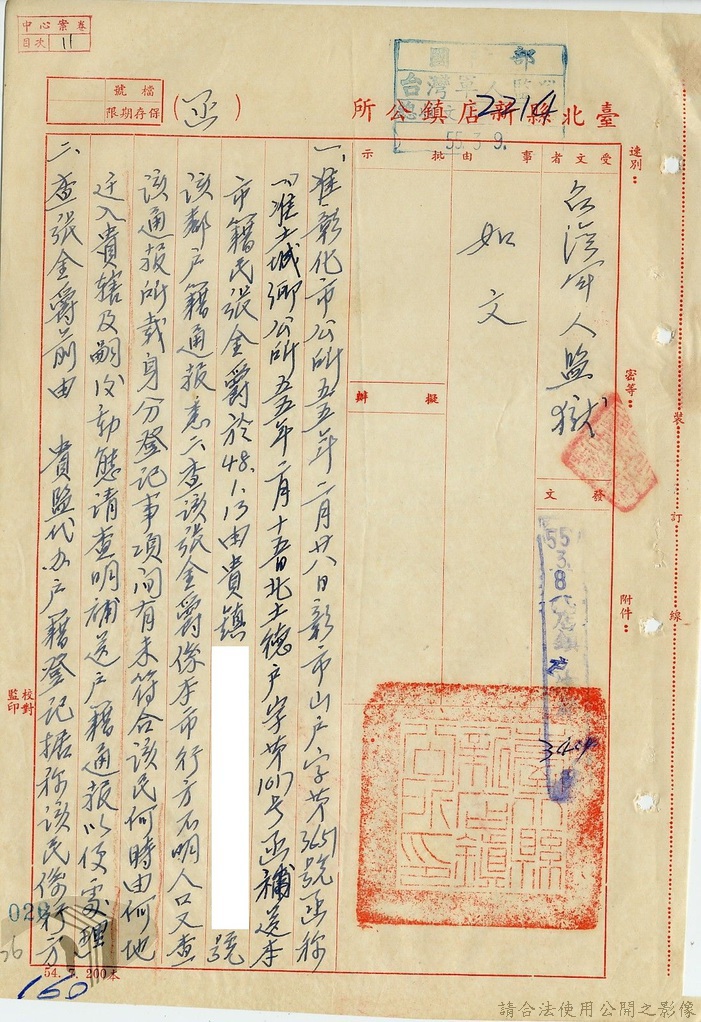 中心案卷
目次 11
檔號
保存期限
(函)
臺北縣新店鎮公所
2214
台灣軍人監
55.3.9.
速別：
密等：
附件：
裝 訂 線
受文者
台灣軍人監獄
發文
55.3.8
事由
如文
批示
擬辦
一、准彰化市公所五五年二月廿八日彰市山戶字第3651號函称
「准土城鄉公所五五年二月十五日北土德戶字第1017号函補送本
市籍民張金爵於48.1.13由貴鎮 號
該鄰戶籍通報悉二查該張金爵係本市行方不明人口又查
該通报所載身分登記事項间有未符合該民何時由何地
迁入貴轄及嗣後動態請查明補送戶籍通報以便處理
二、查張金爵前由 貴監代办戶籍登記据称該民係行方
校對
監印
54.7.200本
160
請合法使用公開之影像